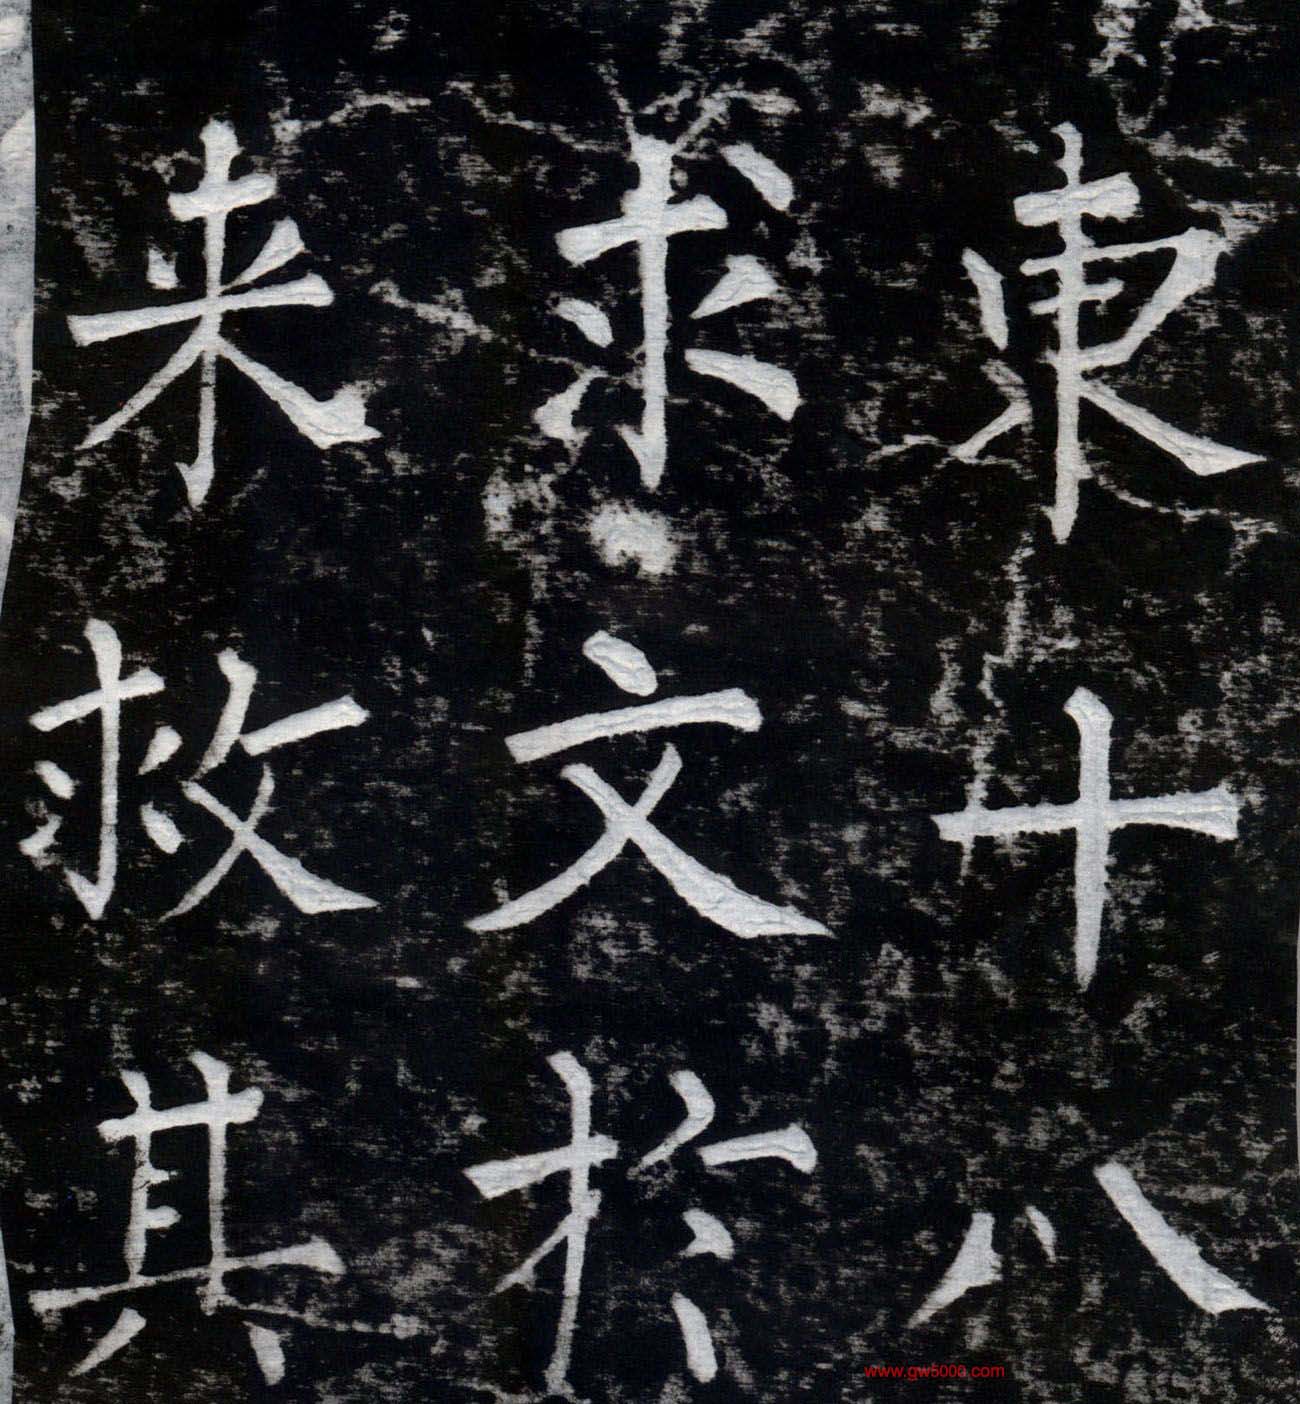 東十八
求文於
来救其
www.gw5000.com